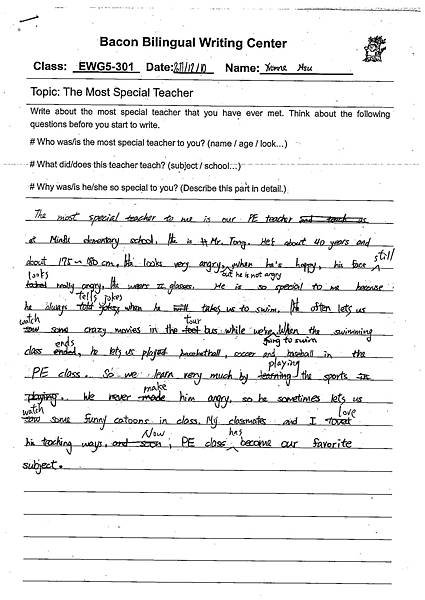 Bacon Bilingual Writing Center
Class: EWG5-301 Date: 2011/12/10 Name: Yvonne Hsu
Topic: The Most Special Teacher
Write about the most special teacher that you have ever met. Think about the following
questions before you start to write.
# Who was/is the most special teacher to you? (name / age / look…)
# What did/does this teacher teach? (subject / school…)
# Why was/is he/she so special to you? (Describe this part in detail.)
The most special teacher to me is our PE teacher
at elementary school. He is Mr. Tong. He's about 40 years and
about 175~180 cm. He looks very angry, when he's happy, his face still
looks really angry, but he is not angry He wears glasses. He is so special to me because
he always tells jokes when he takes us to swim. He often lets us
watch some crazy movies in the tour bus while we're going to swim When the swimming
class ends, he lets us played basketball, soccer and baseball in the
PE class. So we learn very much by playing the sports
We never make him angry, so he sometimes lets us
watch some funny catoons in class. My classmates and I love
his teaching ways. Now, PE class has become our favorite
subject.